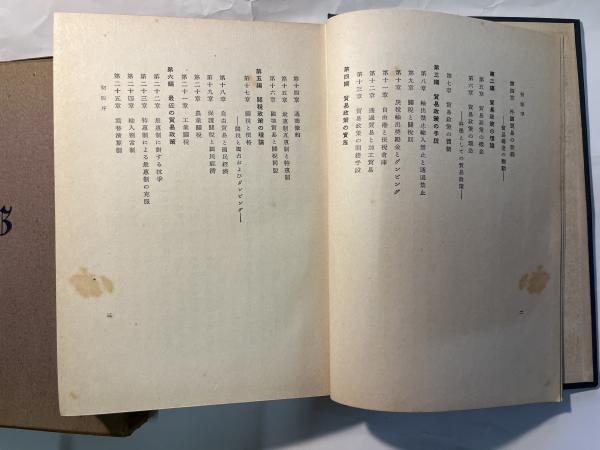 初學序
第四章 外國貿易の發展
第二編 貿易政策の理論
第五章 貿易政策の概念
第六章 貿易政策の理念
第七章 貿易政策の體制
第三編 貿易政策の手段
第八章 輸出禁止輸入禁止と通過禁止
第九章 關稅と關稅政
第十章 戾稅輸出奬勵金とダンピング
第十一章 自由港と保稅倉庫
第十二章 通過貿易と加工貿易
第十三章 貿易政策の間接手段
第四編 貿易政策の實施
二
第十四章 通商條約
第十五章 最惠制互惠制と特惠制
第十六章 國境貿易と關稅同盟
第五編 關稅政策の理論
第十七章 關稅と價格
第十八章 自由貿易と國民經濟
第十九章 保護關稅と國民經濟
第二十章 農業關稅
第二十一章 工業關稅
第六編 最近の貿易政策
第二十二章 最惠制に對する抗爭
第二十三章 特惠制による最惠制の克服
第二十四章 輸入割當制
第二十五章 爲替淸算制
初學序
三